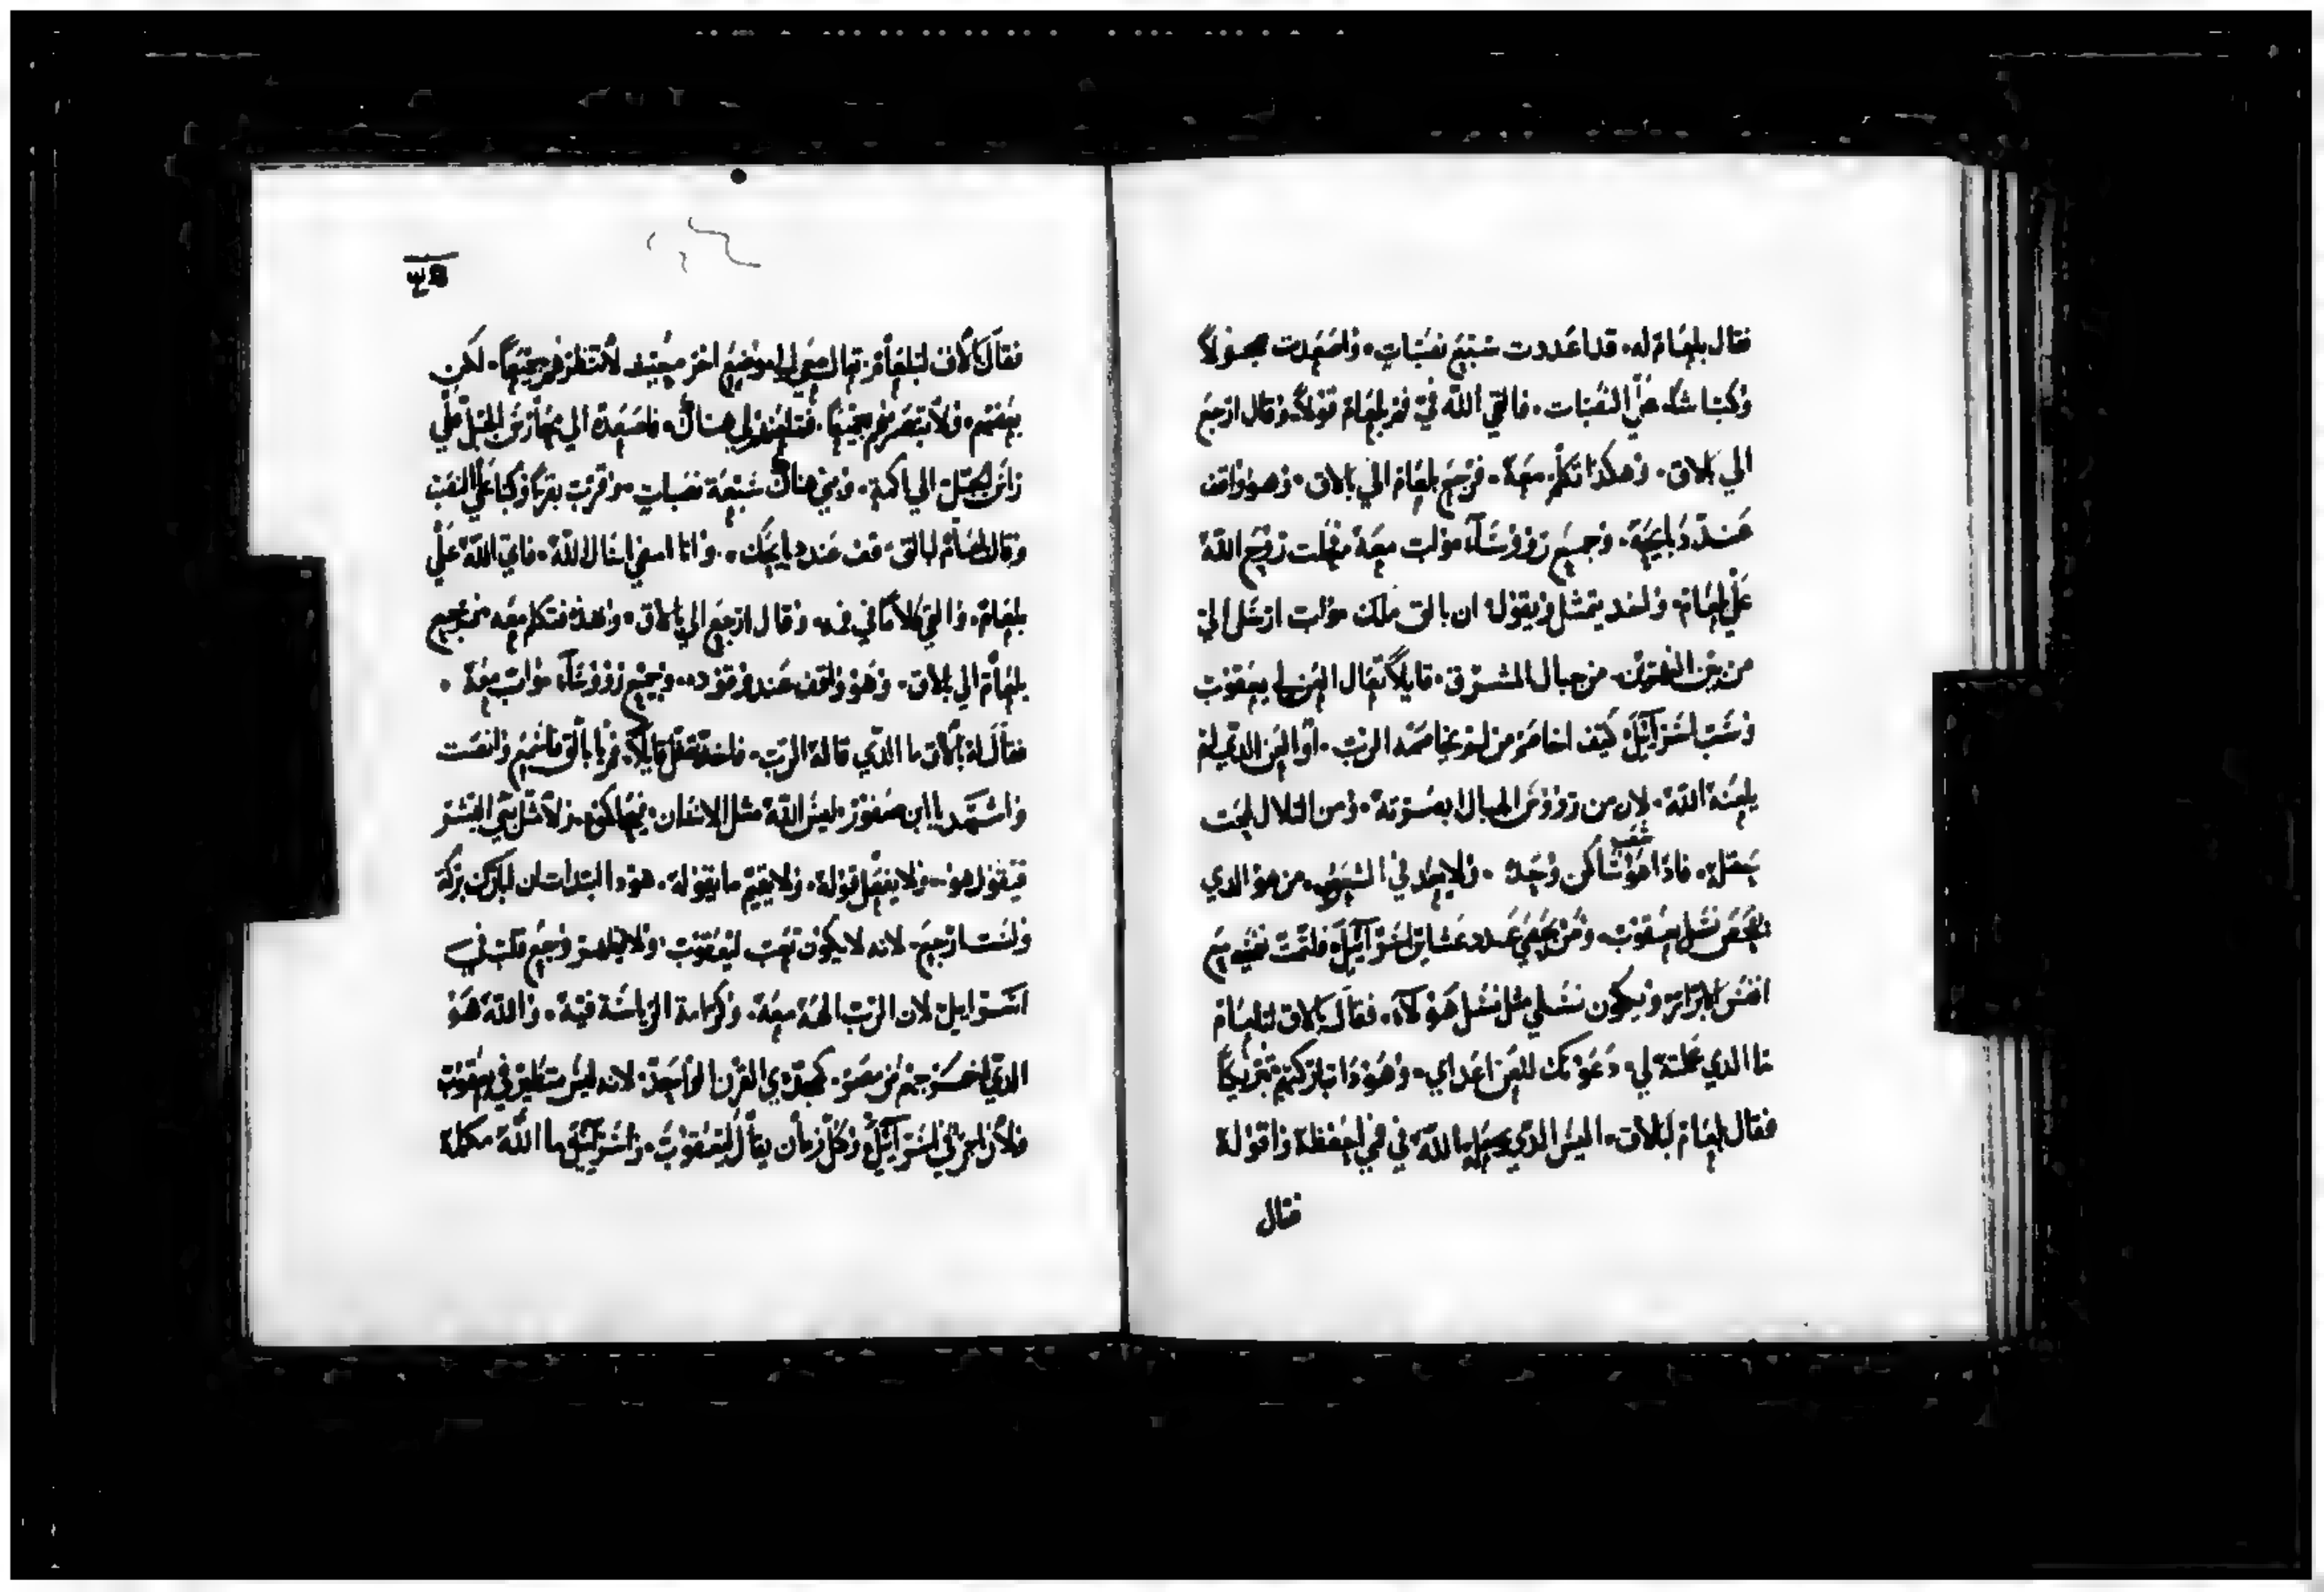 فقال بلعام له. قد اعددت سبع نصبات. واصعدت عجولاً
وكباشاً علي النصبات. فالقي الله في فم بلعام قولاً. وقال ارجع
الي بالاق. وهكذا تكلم معه. فرجع بلعام الي بالاق. وهو واقف
عند دبايحه. وجميع رووساء مواب معه فحلت روح الله
علي بلعام. واخد يتمثل ويقول ان بالاق ملك مواب ارسل الي
من بين النهرين. من جبال المشرق. قايلاً تعال العن لي يعقوب
وسب اسراييل كيف اخاصم من لم يخاصمه الرب. او العن الدي لم
يلعنه الله. لان من رووس الجبال ابصرته. ومن التلال لحت
شعب
بعقله. فاذا هو ساكن وحده. ولا يعد في الشعوب. من هو الدي
يحص نسل يعقوب. ومن يحصي عدد عشاير اسراييل فلتمت نفسي مع
انفس الابرار ويكون نسلي مثل نسل هولاء. فقال بالاق لبلعام
ما الدي عملته لي. دعوتك للعن اعداي. وهودا تباركهم تبريكاً
فقال بلعام لبالاق. اليس الدي يجعله الله في فمي احفظه واقوله
فقال
فقال بالاق لبلعام تعال معي الي موضع اخر حيث لا تنظرهم جميعاً. لكن
بعضهم. ولا تبصرهم جميعاً. فتلعنهم لي هناك. فاصعده الي
راس الجبل الي اكمة. وبني هناك سبعة نصبات. وقرب بقراً وكباشاً علي النصب
وقال بلعام لبالاق قف عند دبايحك. وانا امضي اسال الله. فاتي الله علي
بلعام. والقي كلاماً في فمه. وقال ارجع الي بالاق. وهذا فتكلم معه فرجع
بلعام الي بالاق. وهو واقف عند وقوده. وجميع رووساء مواب معه.
فقال له بالاق ما الدي قاله الرب. فاخد يتمثل قايلاً. قم يا بالاق فاسمع وانصت
واستشهد يا ابن صفور. ليس الله مثل الانسان. ولا مثل بني البشر
فيقول هو. ولا يفعل قوله. ولا يقيم ما يقوله. هودا ابتدات ان ابارك بركة
ولست ارجع. لانه لا يكون تعب ليعقوب. ولا وجع قلب في
اسراييل لان الرب الهه معه. وكرامة الرياسة فيه. والله هو
الدي اخرجهم من مصر. كمجد دي القرن الواحد. لانه ليس متطير في يعقوب
ولا زاجر في اسراييل وكل زمان يقال ليعقوب. واسراييل ما الله مكمله